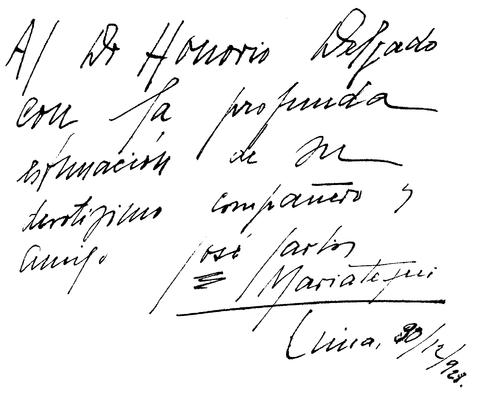 Al Dr Honorio Delgado
con la profunda
estimación de su
devotísimo compañero y
amigo
José Carlos
Mariátegui
Lima, 30/12/928.